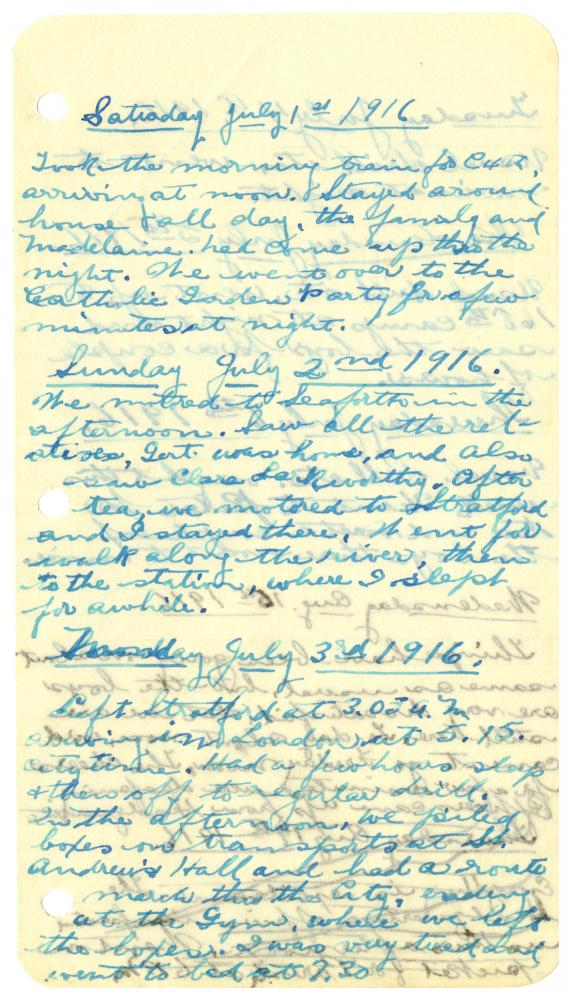 Satruday July 1st 1916
Took the morning train for
arriving at noon. Stayed around
house all day, the family and
Madelaine. come up thro the
night. We went over to the
Catholic Garden Party for a few
minutes at night.
Sunday July 2nd 1916.
We motred to Seaforth in the
afternoon. Saw all the rel-
atives, Gert was home, and also
saw Clara After
tea, we motored to Stratford
and I stayed there. Went for
walk along the river, then
to the station, where I slept
for awhile.
July 3rd 1916.
Left Stratford at
arriving in London at 5.15.
city time. Had a few hours sleep
& then off to regular drill.
In the afternoon, we piled
boxes on transports at St.
Andrew's Hall and had a route
march thro the City, ending
at the Gym, where we left
the boxes. I was very tired and
went to bed at 7.30